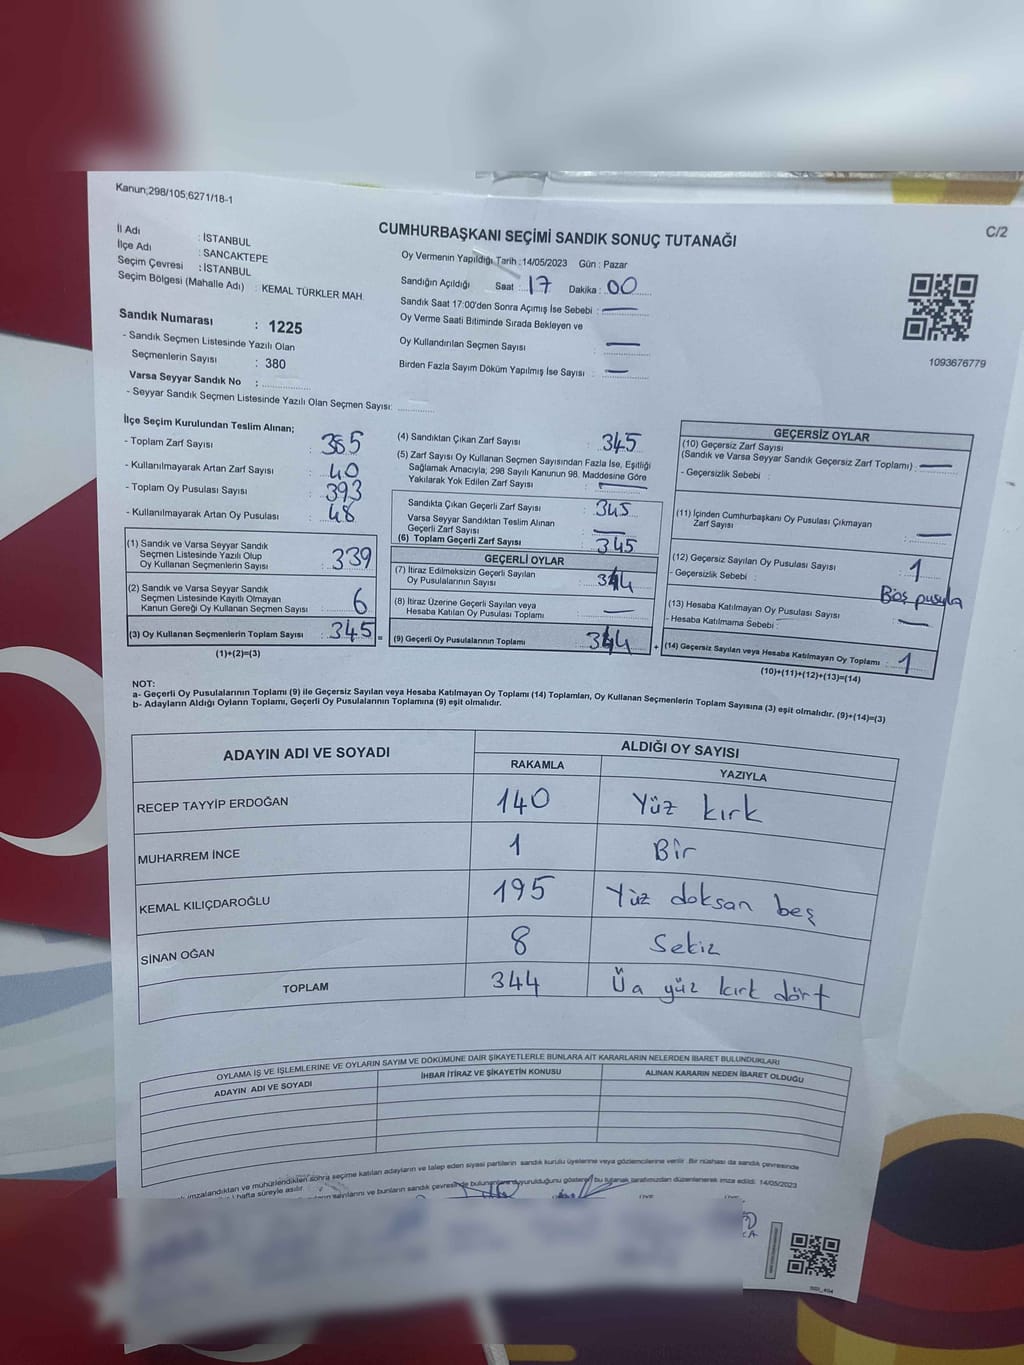 Kanun;298/105;6271/18-1
C/2
CUMHURBAŞKANI SEÇİMİ SANDIK SONUÇ TUTANAĞI
İl Adı : İSTANBUL
İlçe Adı : SANCAKTEPE
Seçim Çevresi : İSTANBUL
Seçim Bölgesi (Mahalle Adı) : KEMAL TÜRKLER MAH.
Sandık Numarası : 1225
- Sandık Seçmen Listesinde Yazılı Olan
Seçmenlerin Sayısı : 380
Varsa Seyyar Sandık No :
- Seyyar Sandık Seçmen Listesinde Yazılı Olan Seçmen Sayısı:
Oy Vermenin Yapıldığı Tarih :14/05/2023 Gün : Pazar
Sandığın Açıldığı Saat : 17 Dakika : 00
Sandık Saat 17:00'den Sonra Açımış İse Sebebi : —
Oy Verme Saati Bitiminde Sırada Bekleyen ve
Oy Kullandırılan Seçmen Sayısı : —
Birden Fazla Sayım Döküm Yapılmış İse Sayısı : —
1093676779
İlçe Seçim Kurulundan Teslim Alınan;
- Toplam Zarf Sayısı : 385
- Kullanılmayarak Artan Zarf Sayısı : 40
- Toplam Oy Pusulası Sayısı : 393
- Kullanılmayarak Artan Oy Pusulası : 48
(1) Sandık ve Varsa Seyyar Sandık
Seçmen Listesinde Yazılı Olup
Oy Kullanan Seçmenlerin Sayısı : 339
(2) Sandık ve Varsa Seyyar Sandık
Seçmen Listesinde Kayıtlı Olmayan
Kanun Gereği Oy Kullanan Seçmen Sayısı : 6
(3) Oy Kullanan Seçmenlerin Toplam Sayısı : 345 =
(1)+(2)=(3)
(4) Sandıktan Çıkan Zarf Sayısı : 345
(5) Zarf Sayısı Oy Kullanan Seçmen Sayısından Fazla İse, Eşitliği
Sağlamak Amacıyla; 298 Sayılı Kanunun 98. Maddesine Göre
Yakılarak Yok Edilen Zarf Sayısı : —
Sandıkta Çıkan Geçerli Zarf Sayısı : 345
Varsa Seyyar Sandıktan Teslim Alınan
Geçerli Zarf Sayısı : —
(6) Toplam Geçerli Zarf Sayısı : 345
GEÇERLİ OYLAR
(7) İtiraz Edilmeksizin Geçerli Sayılan
Oy Pusulalarının Sayısı : 344
(8) İtiraz Üzerine Geçerli Sayılan veya
Hesaba Katılan Oy Pusulası Toplamı : —
(9) Geçerli Oy Pusulalarının Toplamı : 344 +
GEÇERSİZ OYLAR
(10) Geçersiz Zarf Sayısı
(Sandık ve Varsa Seyyar Sandık Geçersiz Zarf Toplamı) : —
- Geçersizlik Sebebi :
(11) İçinden Cumhurbaşkanı Oy Pusulası Çıkmayan
Zarf Sayısı : —
(12) Geçersiz Sayılan Oy Pusulası Sayısı : 1
- Geçersizlik Sebebi : Boş pusula
(13) Hesaba Katılmayan Oy Pusulası Sayısı : —
- Hesaba Katılmama Sebebi :
(14) Geçersiz Sayılan veya Hesaba Katılmayan Oy Toplamı : 1
(10)+(11)+(12)+(13)=(14)
NOT:
a- Geçerli Oy Pusulalarının Toplamı (9) ile Geçersiz Sayılan veya Hesaba Katılmayan Oy Toplamı (14) Toplamları, Oy Kullanan Seçmenlerin Toplam Sayısına (3) eşit olmalıdır. (9)+(14)=(3)
b- Adayların Aldığı Oyların Toplamı, Geçerli Oy Pusulalarının Toplamına (9) eşit olmalıdır.
ADAYIN ADI VE SOYADI ALDIĞI OY SAYISI
RAKAMLA YAZIYLA
RECEP TAYYİP ERDOĞAN 140 Yüz kırk
MUHARREM İNCE 1 Bir
KEMAL KILIÇDAROĞLU 195 Yüz doksan beş
SİNAN OĞAN 8 Sekiz
TOPLAM 344 yüz kırk dört
OYLAMA İŞ VE İŞLEMLERİNE VE OYLARIN SAYIM VE DÖKÜMÜNE DAİR ŞİKAYETLERLE BUNLARA AİT KARARLARIN NELERDEN İBARET BULUNDUKLARI
ADAYIN ADI VE SOYADI İHBAR İTİRAZ VE ŞİKAYETİN KONUSU ALINAN KARARIN NEDEN İBARET OLDUĞU
imzalandıktan ve mühürlendikten sonra seçime katılan adayların ve talep eden siyasi partilerin sandık kurulu üyelerine veya gözlemcilerine verilir. Bir nüshası da sandık çevresinde
hafta süreyle asılır.
ve bunların sandık çevresinde bulunanlara duyurulduğunu gösteren bu tutanak tarafımızdan düzenlenerek imza edildi. 14/05/2023